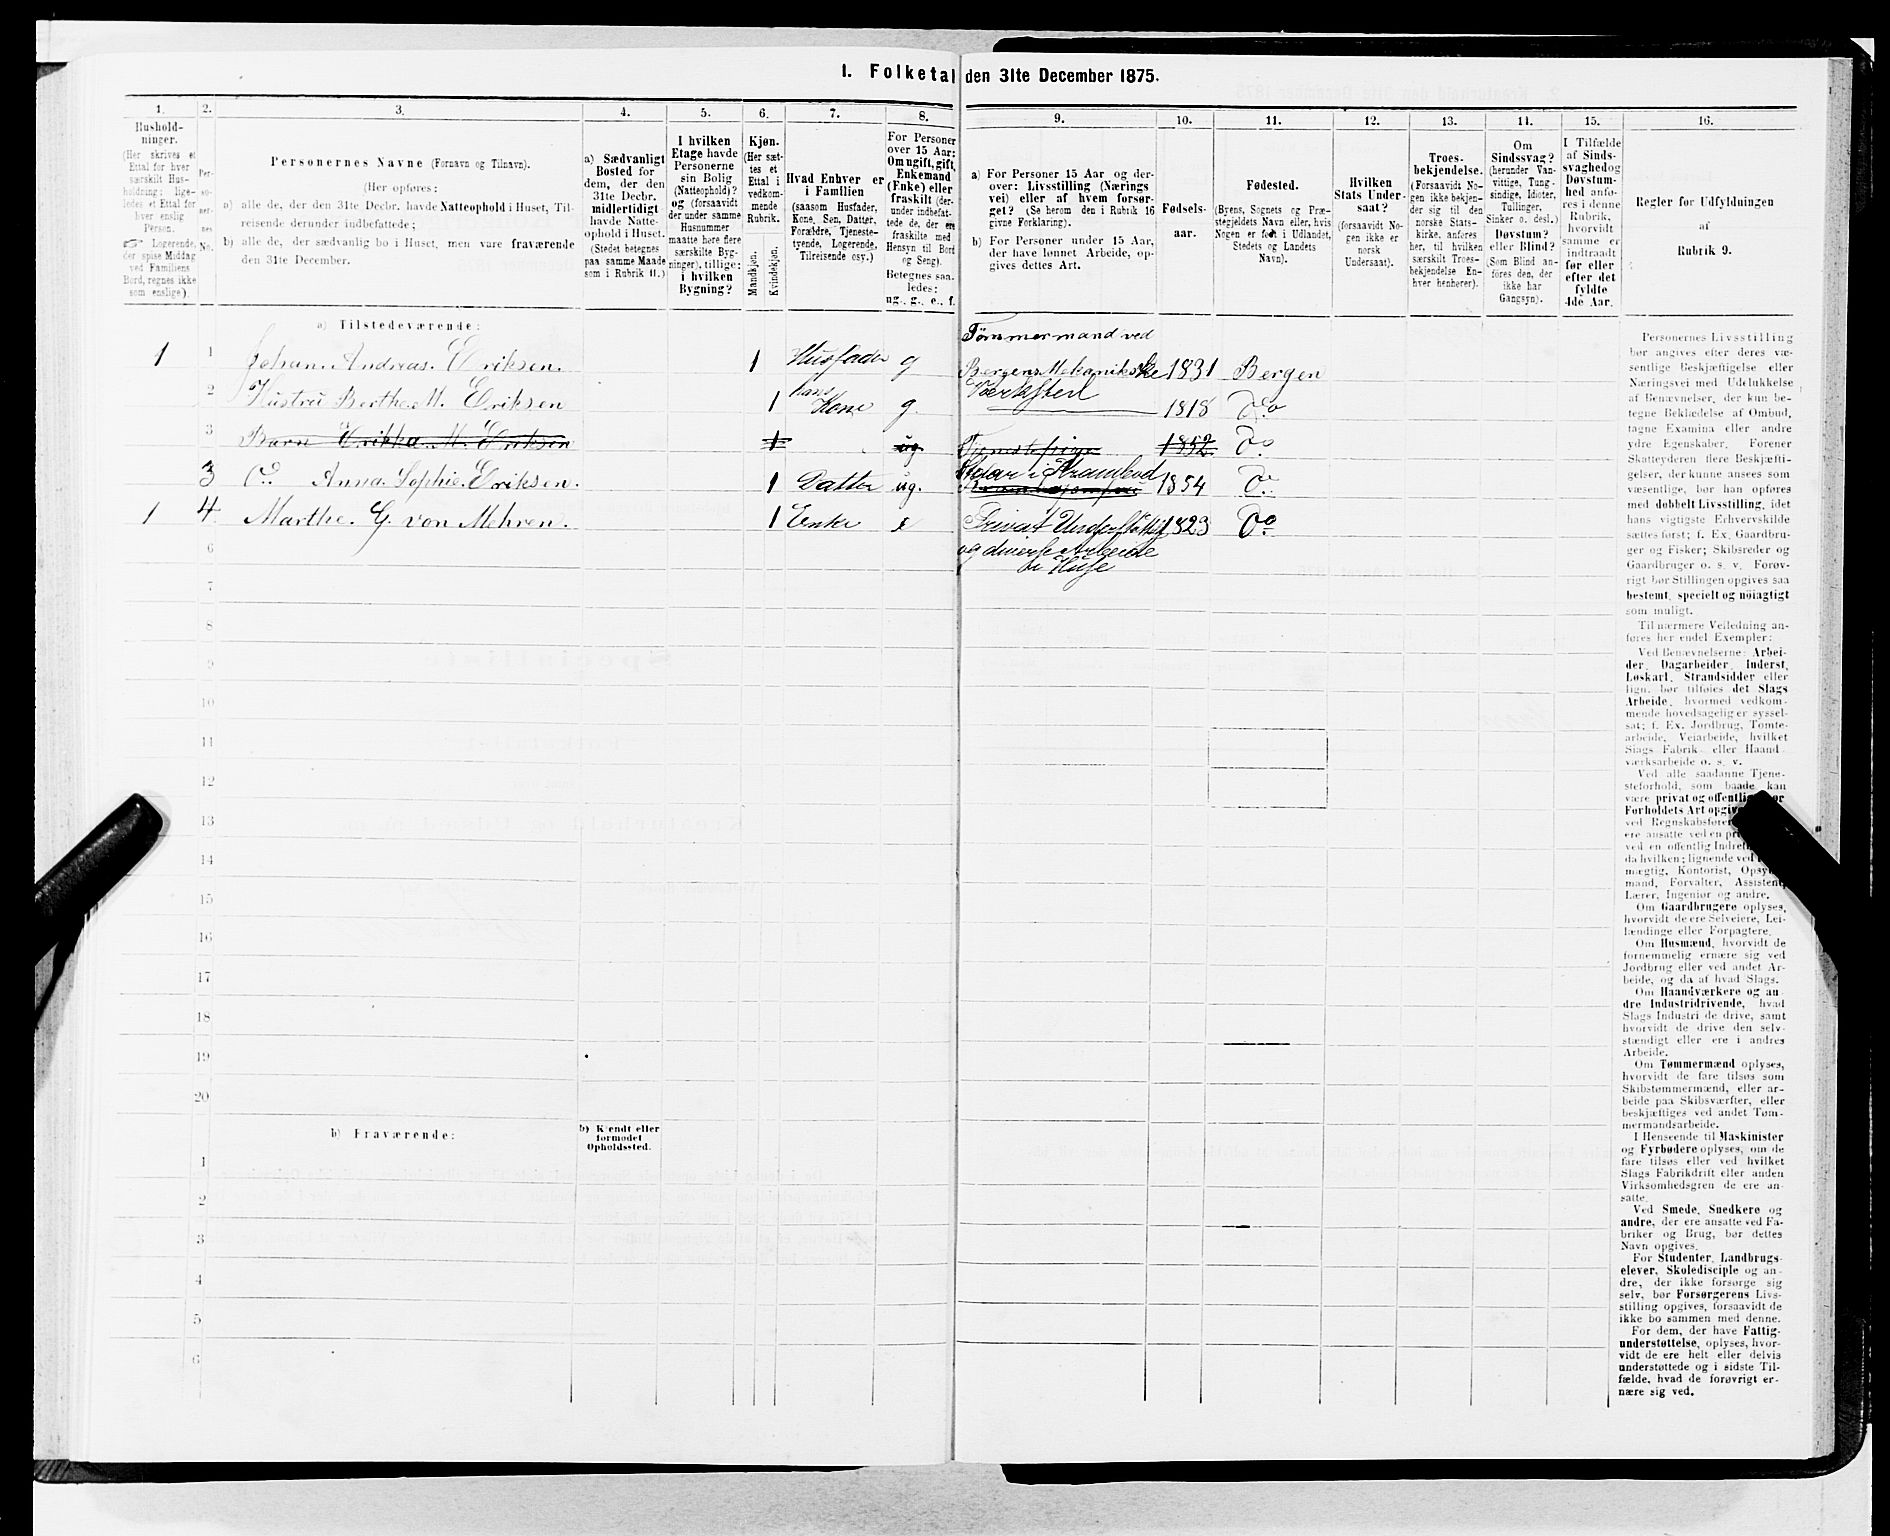 I. Folketal den 31te December 1875.
1.
Hushold-
ninger.
(Her skrives et
Ettal for hver
særskilt Hus-
holdning; lige-
ledes et Ettal for
hver enslig
Person.
Logerende,
der spise Middag
ved Familiens
Bord, regnes ikke
som enslige).
2.
Per-
so-
ner-
nes
No.
3.
Personernes Navne (Fornavn og Tilnavn).
(Her opføres:
a) alle de, der den 31te Decbr. havde Natteophold i Huset, Til-
reisende derunder indbefattede;
b) alle de, der sædvanlig bo i Huset, men vare fraværende
den 31te December.
4.
a) Sædvanligt
Bosted for
dem, der den
31te Decbr.
midlertidigt
havde Natte-
ophold i Huset.
(Stedet betegnes
paa samme Maade
som i Rubrik 11.)
5.
I hvilken
Etage havde
Personerne
sin Bolig
(Natteophold)?
og (forsaavidt
der under samme
Husnummer
maatte høre flere
særskilte Byg-
ninger), tillige:
i hvilken
Bygning?
6.
Kjøn.
(Her sæt-
tes et
Ettal i
vedkom-
mende
Rubrik.
Mandkjøn.
Kvindekjøn.
7.
Hvad Enhver er
i Familien
(saasom Husfader,
Kone, Søn, Datter,
Forældre, Tjeneste-
tyende, Logerende,
Tilreisende osv.)
8.
For Personer
over 15 Aar:
Om ugift, gift,
Enkemand
(Enke) eller
fraskilt (der-
under indbefat-
tede de, der ere
fraskilte med
Hensyn til Bord
og Seng).
Betegnes saa-
ledes:
ug., g., e., f.
9.
a) For Personer 15 Aar og der-
over: Livsstilling (Nærings
vei) eller af hvem forsør-
get? (Se herom den i Rubrik 16
givne Forklaring).
b) For Personer under 15 Aar,
der have lønnet Arbeide, op-
gives dettes Art.
10.
Fødsels-
aar.
11.
Fødested.
(Byens, Sognets og Præ-
stegjeldets Navn eller, hvis
Nogen er født i Udlandet,
Stedets og Landets
Navn).
12.
Hvilken
Stats Under-
saat?
(forsaavidt No-
gen ikke er
norsk
Undersaat).
13.
Troes-
bekjendelse.
(Forsaavidt No-
gen ikke bekjen-
der sig til den
norske Stats-
kirke, anføres
her, til hvilken
særskilt Troes-
bekjendelse En-
hver henhører).
14.
Om
Sindssvag?
(herunder Van-
vittige, Tung-
sindige, Idioter,
Tullinger,
Sinker o. desl.)
Døvstum?
eller Blind?
(Som Blind an-
føres den, der
ikke har
Gangsyn).
15.
I Tilfælde
af Sinds-
svaghed og
Døvstum-
hed anfø-
res i denne
Rubrik,
hvorvidt
samme er
indtraadt
før eller
efter det
fyldte
4de Aar.
16.
Regler for Udfyldningen
af
Rubrik 9.
a) Tilstedeværende:
Tømmermand ved
1 1 Johan Andreas Eriksen. 1 Husfader g Bergens Mekaniske 1831 Bergen
Værksted
2 Hustru Berthe M. Eriksen 1 hans Kone g. 1818 Do
3 Barn Erikka M. Eriksen 1 ug Tjenestepige 1852 Do
3 Do Anna Sophie Eriksen. 1 Datter ug. Staar i Krambod 1854 Do
1 4 Marthe G. von Mehren. 1 Enke e Privat Understøttet 1823 Do
og diverse Arbeide
i Huse
6
7
8
9
10
11
12
13
14
15
16
17
18
19
20
b) Fraværende:
b) Kjendt eller
formodet
Opholdssted.
1
2
3
4
5
6
Personernes Livsstilling
bør angives efter deres væ-
sentlige Beskjæftigelse eller
Næringsvei med Udelukkelse
af Benævnelser, der kun be-
tegne Beklædelse af Ombud,
tagne Examina eller andre
ydre Egenskaber. Forener
Skatteyderen flere Beskjæfti-
gelser, der kunne ansees som
væsentlige, bør han opføres
med dobbelt Livsstilling, idet
hans vigtigste Erhvervskilde
sættes først; f. Ex. Gaardbru-
ger og Fisker; Skibsreder og
Gaardbruger o. s. v. Forøv-
rigt bør Stillingen opgives saa
bestemt, specielt og nøiagtigt
som muligt.
Til nærmere Veiledning an-
føres her endel Exempler:
Ved Benævnelserne: Arbei-
der, Dagarbeider, Inderst,
Løskarl, Strandsidder eller
lign. bør tilføies det Slags
Arbeide, hvormed vedkom-
mende hovedsagelig er syssel-
sat; f. Ex. Jordbrug, Tomte-
arbeide, Veiarbeide, hvilket
Slags Fabrik- eller Haand-
værksarbeide o. s. v.
Ved alle saadanne Tjene-
steforhold, som baade kan
være privat og offentlig, bør
Forholdets Art opgives
ved Regnskabsfører
ere ansatte ved en
ved en offentlig
da hvilken; lignende ved
mægtig, Kontorist,
mand, Forvalter, Assistent,
Lærer, Ingeniør og andre.
Om Gaardbrugere oplyses,
hvorvidt de ere Selveiere, Lei-
lændinge eller Forpagtere.
Om Husmænd, hvorvidt de
fornemmelig ernære sig ved
Jordbrug eller ved andet Ar-
beide, og da af hvad Slags.
Om Haandværkere og an
dre Industridrivende, hvad
Slags Industri de drive, samt
hvorvidt de drive den selv-
stændigt eller ere i andres
Arbeide.
Om Tømmermænd oplyses,
hvorvidt de fare tilsøs som
Skibstømmermænd, eller ar-
beide paa Skibsværfter, eller
beskjæftiges ved andet Tøm-
mermandsarbeide.
I Henseende til Maskinister
og Fyrbødere oplyses, om de
fare tilsøs eller ved hvilket
Slags Fabrikdrift eller anden
Virksomhedsgren de ere an-
satte.
Ved Smede, Snedkere og
andre, der ere ansatte ved Fa-
briker og Brug, bør dettes
Navn opgives.
For Studenter, Landbrugs-
elever, Skoledisciple og an-
dre, der ikke forsørge sig
selv, bør Forsørgerens Livs-
stilling opgives, forsaavidt de
ikke bo sammen med denne.
For dem, der have Fattig-
understøttelse, oplyses, hvor-
vidt de ere helt eller delvis
understøttede og i sidste Til-
fælde, hvad de forøvrigt er-
nære sig ved.